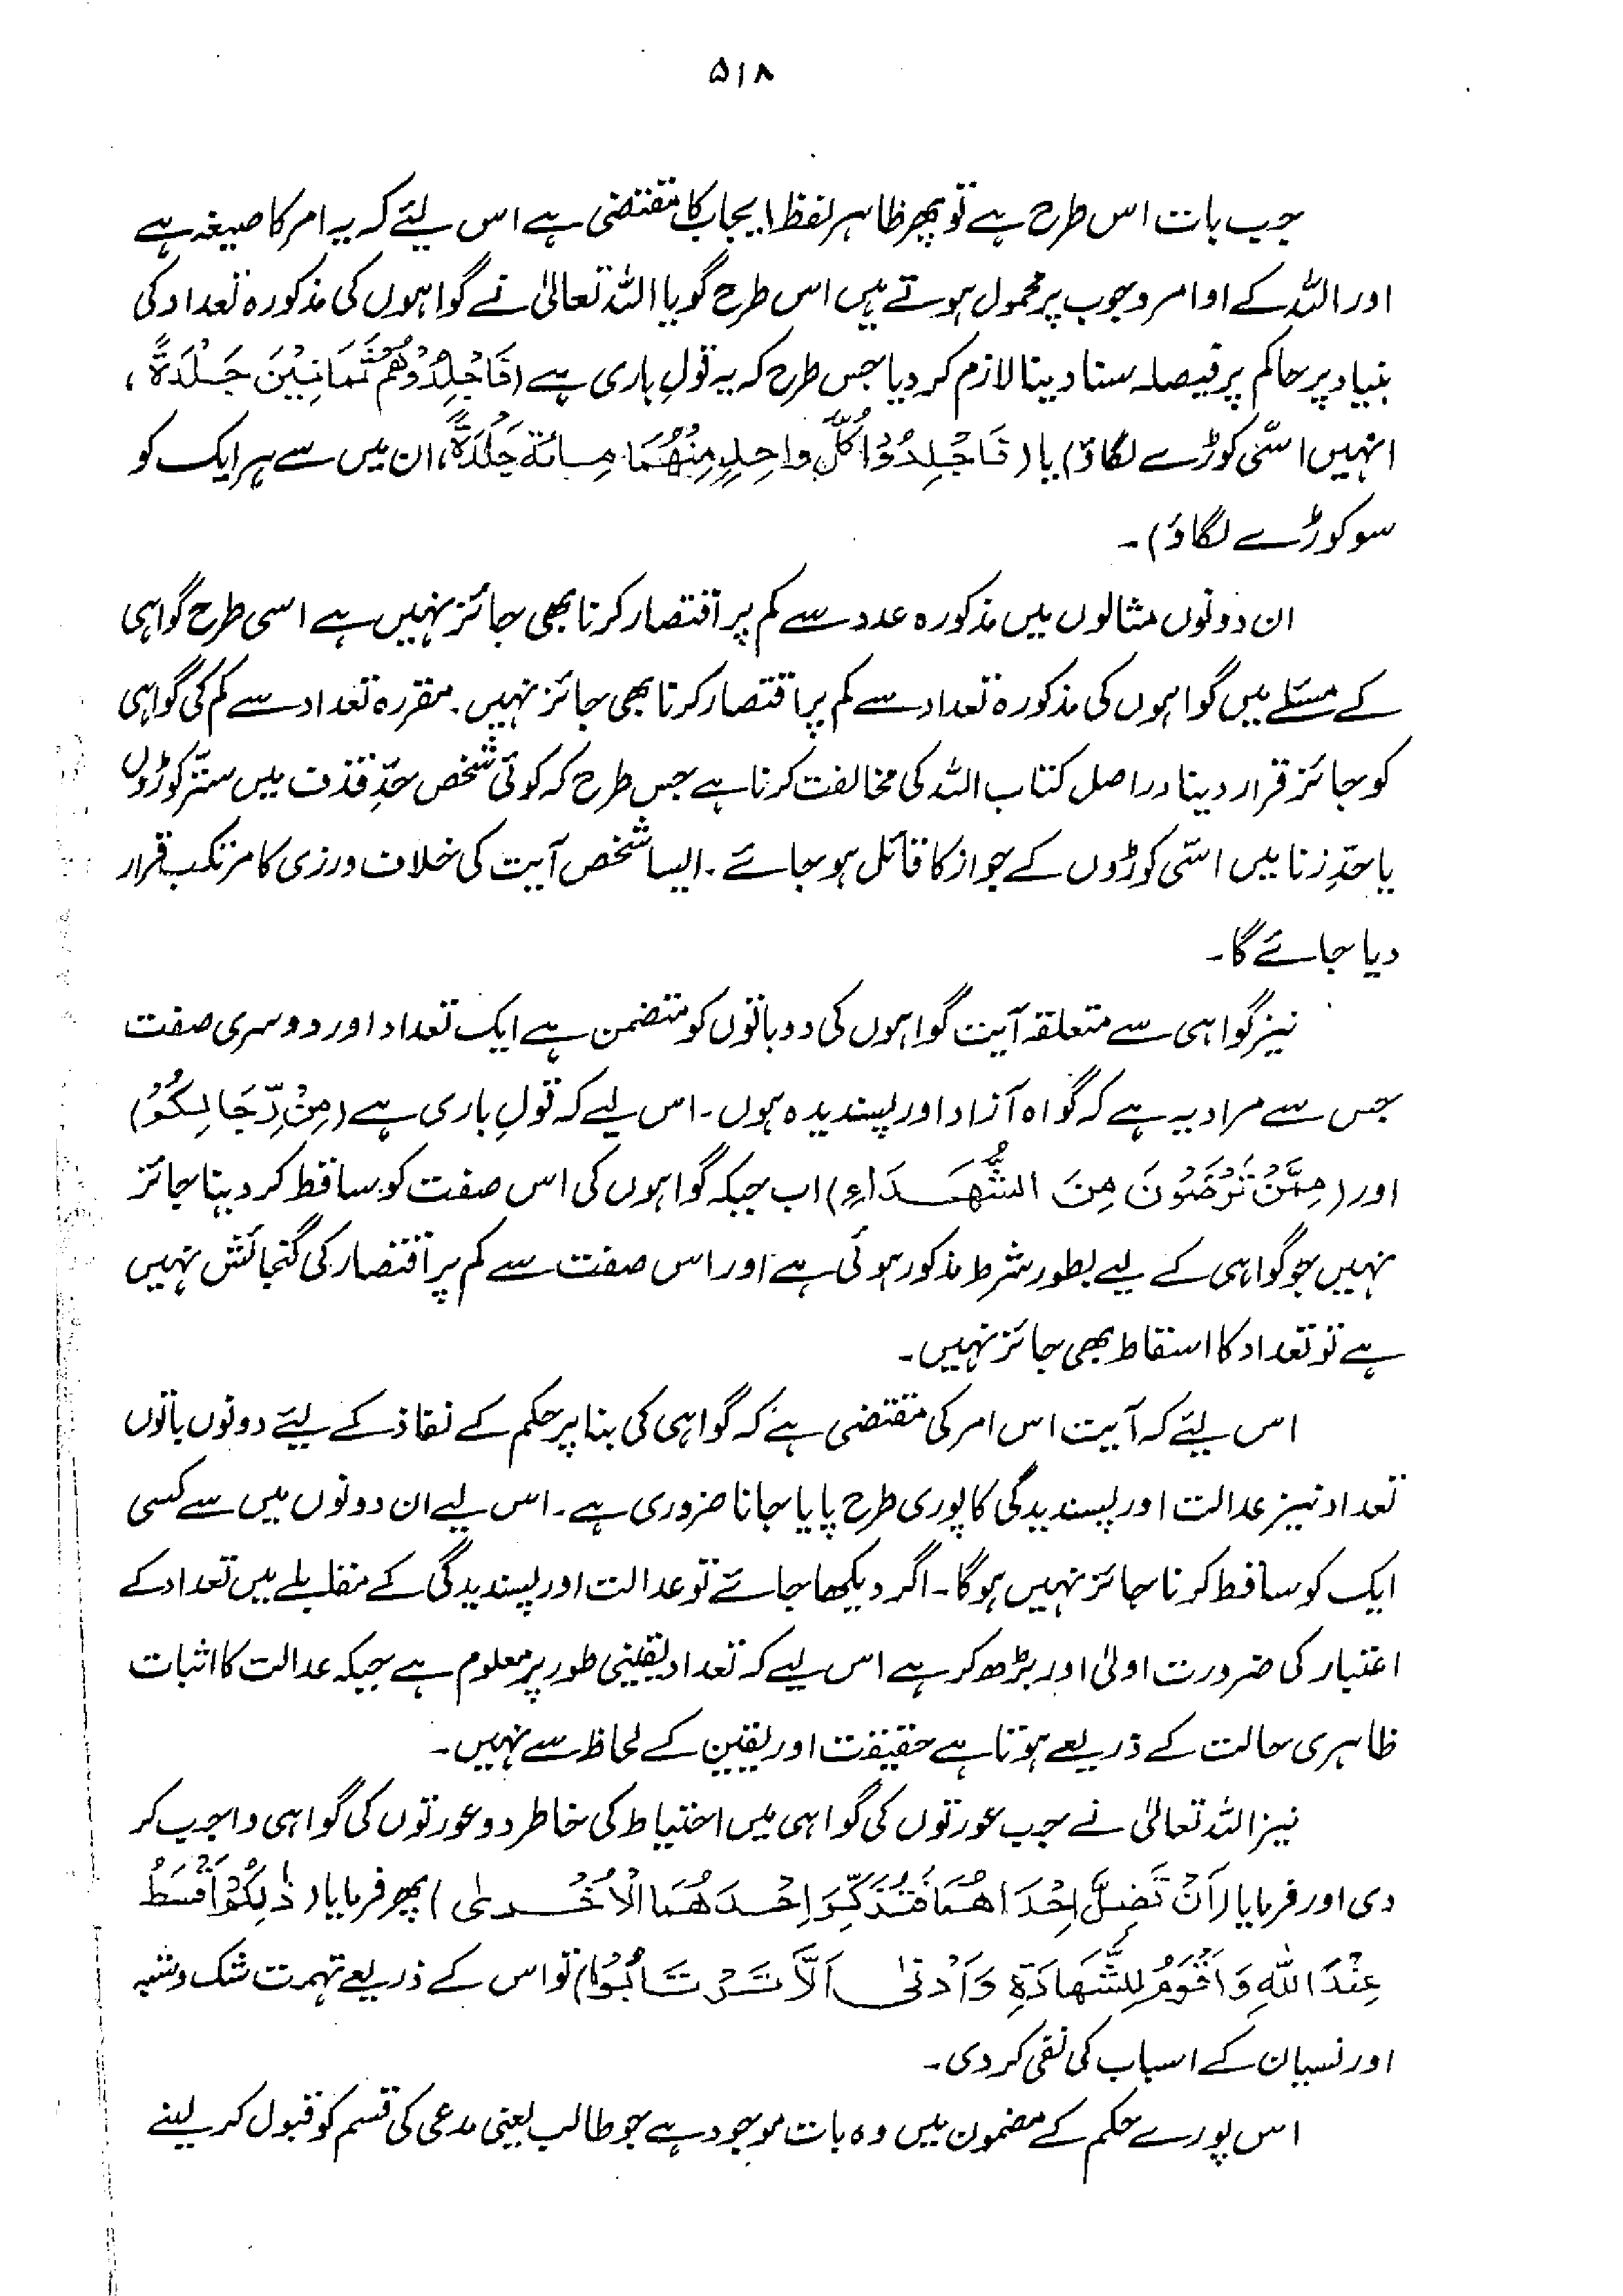 ۵۱۸
جب بات اس طرح ہے تو پھر ظاہر لفظ ایجاب کا مقتضی ہے اس لیئے کہ یہ امر کا صیغہ ہے
اور اللہ کے اوامر وجوب پر محمول ہوتے ہیں اس طرح گویا اللہ تعالیٰ نے گواہوں کی مذکورہ تعداد کی
بنیاد پر حاکم پر فیصلہ سنا دینا لازم کر دیا جس طرح کہ یہ قولِ باری ہے (فَاجْلِدُوْهُمْ ثَمَانِيْنَ جَلْدَةً ،
انہیں اسّی کوڑے لگاؤ) یا (فَاجْلِدُوْا كُلَّ وَاحِدٍ مِنْهُمَا مِائَةَ جَلْدَةً، ان میں سے ہر ایک کو
سو کوڑے لگاؤ)۔
ان دونوں مثالوں میں مذکورہ عدد سے کم پر اقتصار کرنا بھی جائز نہیں ہے اسی طرح گواہی
کے مسئلے میں گواہوں کی مذکورہ تعداد سے کم پر اقتصار کرنا بھی جائز نہیں۔ مقررہ تعداد سے کم کی گواہی
کو جائز قرار دینا دراصل کتاب اللہ کی مخالفت کرنا ہے جس طرح کہ کوئی شخص حدِّ قذف میں ستّر کوڑوں
یا حدِّ زنا میں اسّی کوڑوں کے جواز کا قائل ہو جائے۔ ایسا شخص آیت کی خلاف ورزی کا مرتکب قرار
دیا جائے گا۔
نیز گواہی سے متعلقہ آیت گواہوں کی دو باتوں کو متضمن ہے ایک تعداد اور دوسری صفت
جس سے مراد یہ ہے کہ گواہ آزاد اور پسندیدہ ہوں۔ اس لیے کہ قولِ باری ہے (مِنْ رِّجَالِكُمْ)
اور (مِمَّنْ تَرْضَوْنَ مِنَ الشُّهَدَاءِ) اب جبکہ گواہوں کی اس صفت کو ساقط کر دینا جائز
نہیں جو گواہی کے لیے بطور شرط مذکور ہوئی ہے اور اس صفت سے کم پر اقتصار کی گنجائش نہیں
ہے تو تعداد کا اسقاط بھی جائز نہیں۔
اس لیئے کہ آیت اس امر کی مقتضی ہے کہ گواہی کی بنا پر حکم کے نفاذ کے لیئے دونوں باتوں
تعداد نیز عدالت اور پسندیدگی کا پوری طرح پایا جانا ضروری ہے۔ اس لیے ان دونوں میں سے کسی
ایک کو ساقط کرنا جائز نہیں ہوگا۔ اگر دیکھا جائے تو عدالت اور پسندیدگی کے مقابلے میں تعداد کے
اعتبار کی ضرورت اولیٰ اور بڑھ کر ہے اس لیے کہ تعداد یقینی طور پر معلوم ہے جبکہ عدالت کا اثبات
ظاہری حالت کے ذریعے ہوتا ہے حقیقت اور یقین کے لحاظ سے نہیں۔
نیز اللہ تعالیٰ نے جب عورتوں کی گواہی میں احتیاط کی خاطر دو عورتوں کی گواہی واجب کر
دی اور فرمایا (اَنْ تَضِلَّ اِحْدَاهُمَا فَتُذَكِّرَ اِحْدَهُمَا الْاُخْرىٰ) پھر فرمایا (ذٰلِكُمْ اَقْسَطُ
عِنْدَ اللّٰهِ وَاَقْوَمُ لِلشَّهَادَةِ وَاَدْنٰى اَلَّا تَرْتَابُوْا) تو اس کے ذریعے تہمت شک و شبہ
اور نسیان کے اسباب کی نفی کر دی۔
اس پورے حکم کے مضمون میں وہ بات موجود ہے جو طالب یعنی مدعی کی قسم کو قبول کر لینے